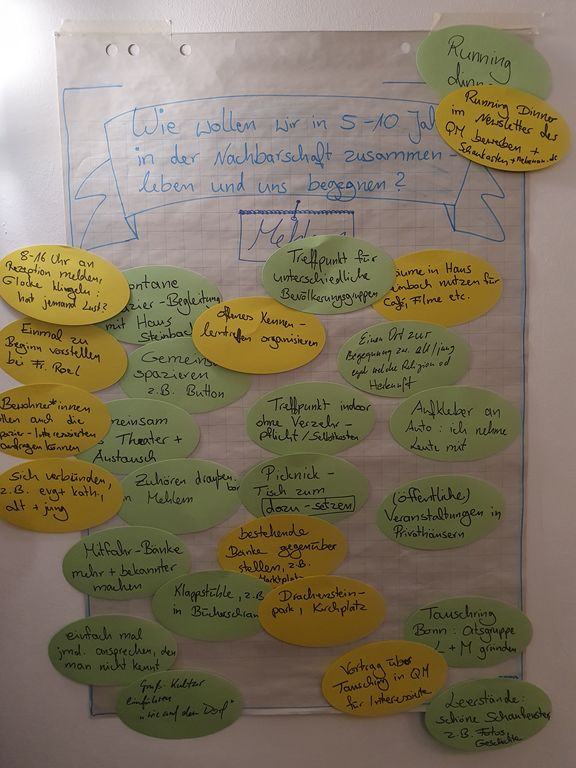 Running
Running Dinner
im Newsletter des
QM bewerben +
Schaukasten +
Wie wollen wir in 5-10 Jah
in der Nachbarschaft zusammen-
leben und uns begegnen?
Mehlem
8-16 Uhr an
Rezeption melden,
Glocke klingeln:
hat jemand Lust?
ontane
azier-Begleitung
mit Haus
Steinbach
Treffpunkt für
unterschiedliche
Bevölkerungsgruppen
äume in Haus
einbach nutzen für
Café, Filme etc.
offenes Kennen-
lerntreffen organisieren
Einmal zu
Beginn vorstellen
bei Fr. Roel
Gemeins
spazieren
z.B. Button
Einen Ort zur
Begegnung zw. alt/jung
egal welche Religion od
Herkunft
Bewohner*innen
llen auch die
azier-Interessierten
anfragen können
meinsam
Theater +
Austausch
Treffpunkt indoor
ohne Verzehr-
pflicht/Selbstkosten
Aufkleber an
Auto: ich nehme
Leute mit
sich verbünden,
z.B. evg + kath,
alt + jung
Zuhören draußen.
in Mehlem
bar
Picknick-
Tisch zum
dazu-setzen
(öffentliche)
Veranstaltungen in
Privathäusern
Mitfahr-Bänke
mehr + bekannter
machen
bestehende
Bänke gegenüber
stellen, z.B.
Marktplatz
Klappstühle, z.B.
in Bücherschran
Drachenstein-
park, Kirchplatz
einfach mal
jmd. ansprechen, den
man nicht kennt
Tauschring
Bonn: Ortsgruppe
L + M gründen
Gruß-Kultur
einführen
"wie auf dem Dorf"
Vortrag über
Tauschring in QM
für Interessierte
Leerstände:
schöne Schaufenster
z.B. Fotos
Geschichte